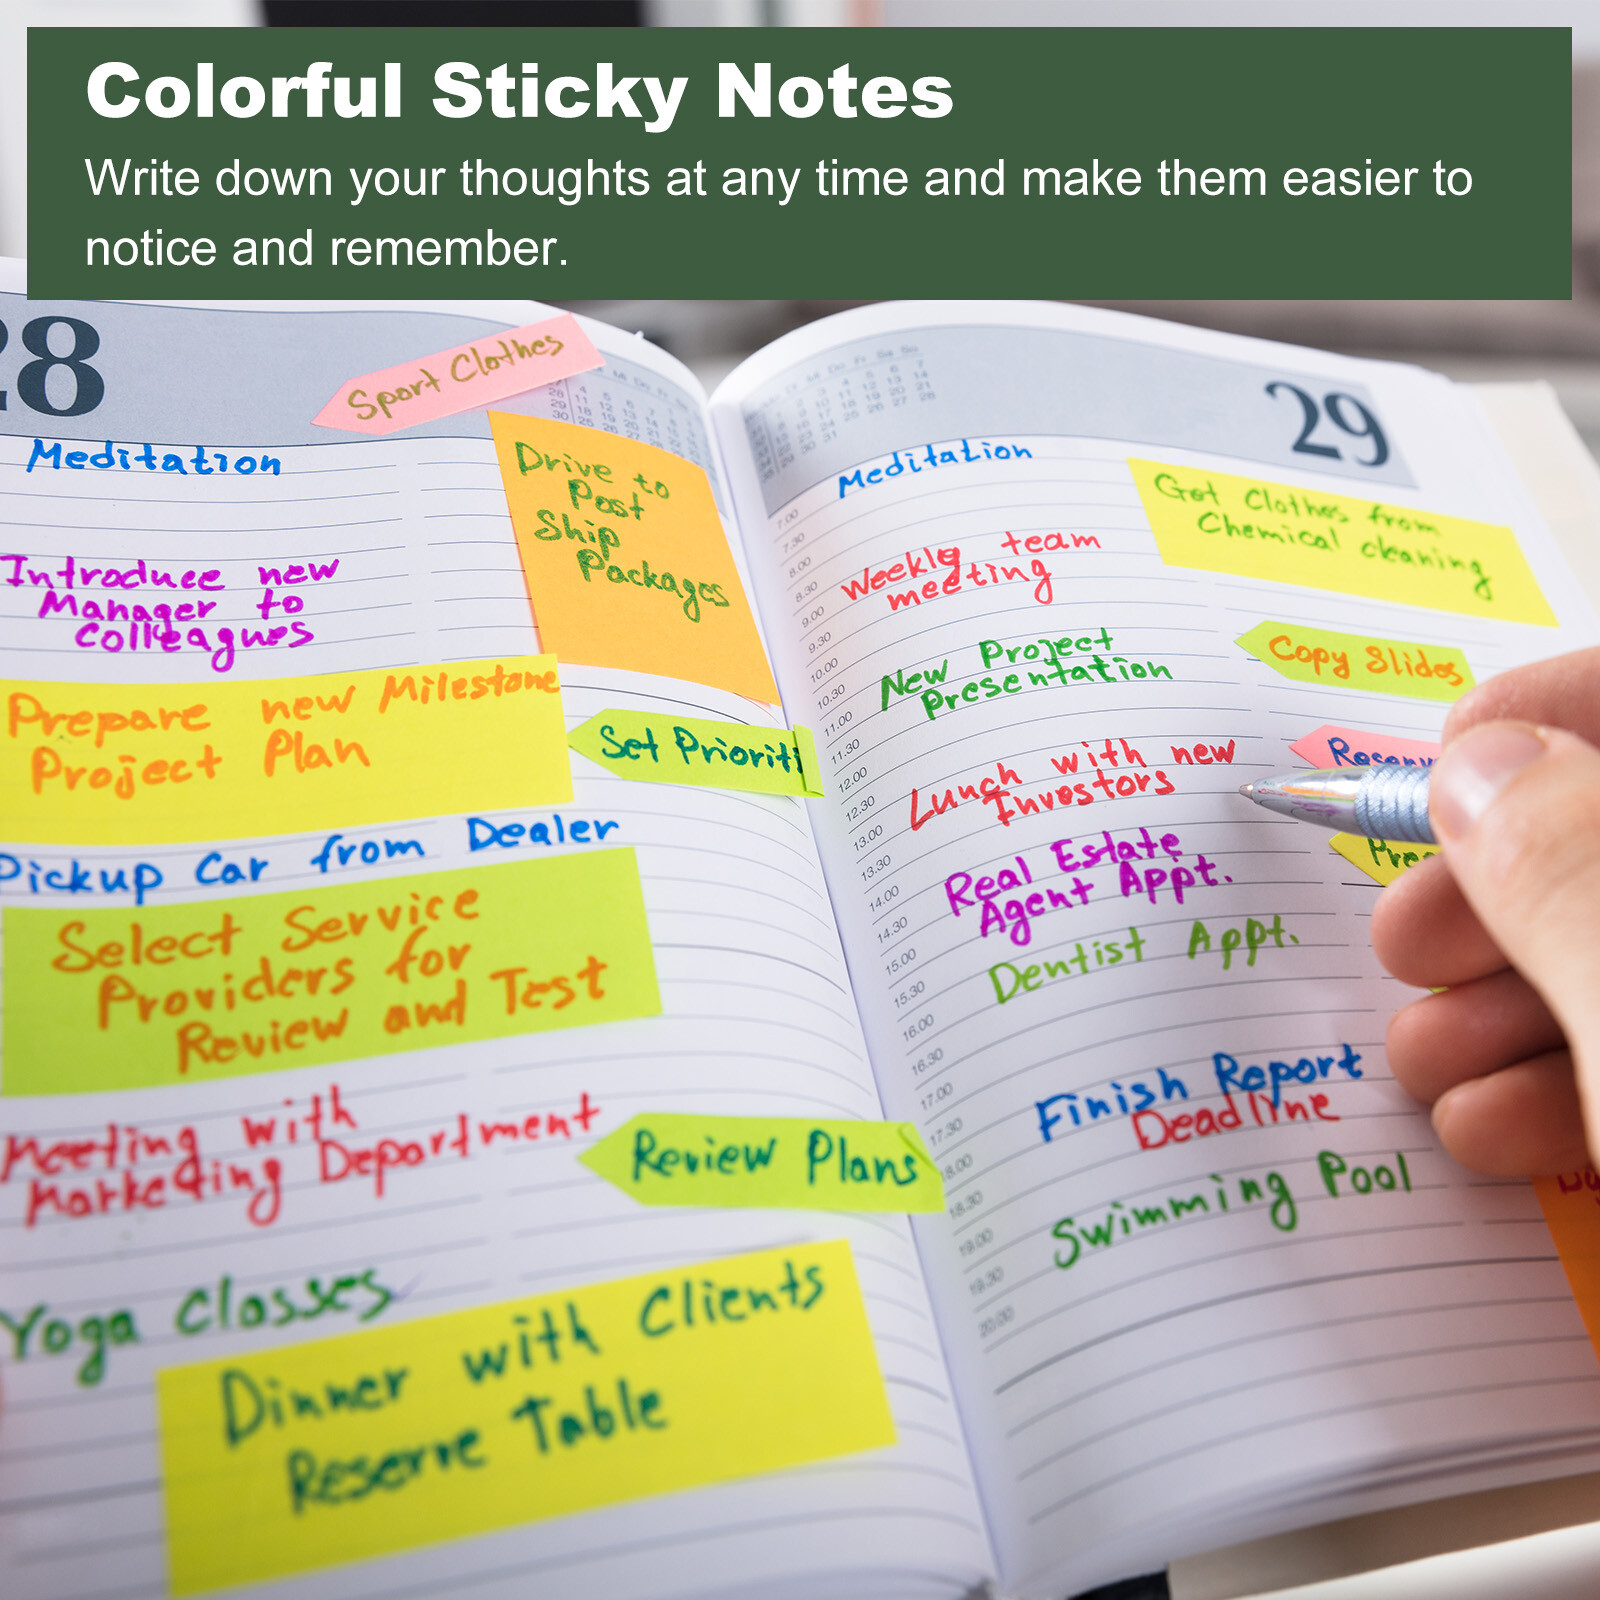 Colorful Sticky Notes
Write down your thoughts at any time and make them easier to
notice and remember.
28
Sport Clothes
Meditation
Drive to
Post
Ship
Packages
Introduce new
Manager to
Colleagues
Prepare new Milestone
Project Plan
Set Prioriti
Pickup Car from Dealer
Select Service
Providers for
Review and Test
Meeting with
Marketing Department
Review Plans
Yoga Classes
Dinner with Clients
Reserve Table
29
Meditation
Get Clothes from
Chemical cleaning
7.00
7.30
8.00
8.30
9.00
9.30
10.00
10.30
11.00
11.30
12.00
12.30
13.00
13.30
14.00
14.30
15.00
15.30
16.00
16.30
17.00
17.30
18.00
18.30
19.00
19.30
20.00
Weekly team
meeting
New Project
Presentation
Copy Slides
Lunch with new
Investors
Real Estate
Agent Appt.
Dentist Appt.
Finish Report
Deadline
Swimming Pool